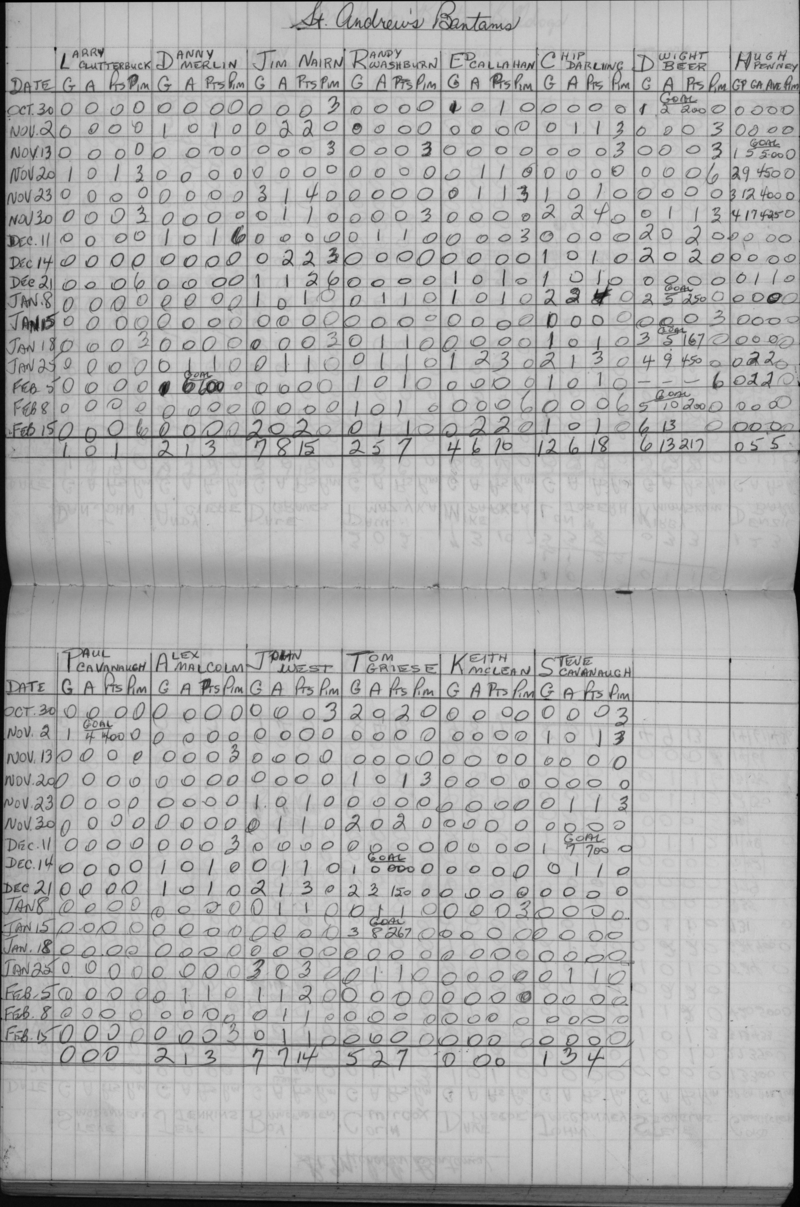 St. Andrew's Bantams
LARRY CLUTTERBUCK DANNY MERLIN JIM NAIRN RANDY WASHBURN ED CALLAHAN CHIP DARLING DWIGHT BEER HUGH PENNEY
DATE G A Pts Pim G A Pts Pim G A Pts Pim G A Pts Pim G A Pts Pim G A Pts Pim G A Pts Pim GP GA AVE Pim
OCT. 30 0 0 0 0 0 0 0 0 0 0 0 3 0 0 0 0 1 0 1 0 0 0 0 0 1 GOAL 2 200 0 0 0 0 0
NOV. 2 0 0 0 0 1 0 1 0 0 2 2 0 0 0 0 0 0 0 0 0 0 1 1 3 0 0 0 3 0 0 0 0
NOV. 13 0 0 0 0 0 0 0 0 0 0 0 3 0 0 0 3 0 0 0 0 0 0 0 3 0 0 0 3 1 GOAL 5 500 0
NOV 20 1 0 1 3 0 0 0 0 0 0 0 0 0 0 0 0 0 1 1 0 0 0 0 0 0 0 0 6 2 9 450 0
NOV 23 0 0 0 0 0 0 0 0 3 1 4 0 0 0 0 0 0 1 1 3 1 0 1 0 0 0 0 0 3 12 400 0
NOV 30 0 0 0 3 0 0 0 0 0 1 1 0 0 0 0 3 0 0 0 0 2 2 4 0 0 1 1 3 4 17 425 0
DEC. 11 0 0 0 0 1 0 1 6 0 0 0 0 0 1 1 0 0 0 0 3 0 0 0 0 2 0 2 0 0 0 0 0
DEC 14 0 0 0 0 0 0 0 0 0 2 2 3 0 0 0 0 0 0 0 0 1 0 1 0 2 0 2 0 0 0 0 0
DEC 21 0 0 0 6 0 0 0 0 1 1 2 6 0 0 0 0 1 0 1 0 1 0 1 0 0 0 0 0 0 1 1 0
JAN. 8 0 0 0 0 0 0 0 0 1 0 1 0 0 1 1 0 1 0 1 0 2 2 4 0 2 GOAL 5 250 0 0 0 0 0
JAN 15 0 0 0 0 0 0 0 0 0 0 0 0 0 0 0 0 0 0 0 0 0 0 0 0 0 0 0 3 0 0 0 0
JAN 18 0 0 0 3 0 0 0 0 0 0 0 3 0 1 1 0 0 0 0 0 1 0 1 0 3 GOAL 5 167 0 0 0 0 0
JAN 25 0 0 0 0 0 1 1 0 0 1 1 0 0 1 1 0 1 2 3 0 2 1 3 0 4 9 450 0 0 2 2 0
FEB 5 0 0 0 0 GOAL 6 600 0 0 0 0 1 0 1 0 0 0 0 0 1 0 1 0 - - - 6 0 2 2 0
FEB 8 0 0 0 0 0 0 0 0 0 0 0 0 1 0 1 0 0 0 0 6 0 0 0 6 5 GOAL 10 200 0 0 0 0 0
FEB 15 0 0 0 6 0 0 0 0 2 0 2 0 0 1 1 0 0 2 2 0 1 0 1 0 6 13 0 0 0 0
1 0 1 2 1 3 7 8 15 2 5 7 4 6 10 12 6 18 6 13 217 0 5 5
PAUL CAVANAUGH ALEX MALCOLM JOHN WEST TOM GRIESE KEITH MCLEAN STEVE CAVANAUGH
DATE G A Pts Pim G A Pts Pim G A Pts Pim G A Pts Pim G A Pts Pim G A Pts Pim
OCT. 30 0 0 0 0 0 0 0 0 0 0 0 3 2 0 2 0 0 0 0 0 0 0 0 3
NOV. 2 1 GOAL 4 400 0 0 0 0 0 0 0 0 0 0 0 0 0 0 0 0 0 1 0 1 3
NOV. 13 0 0 0 0 0 0 0 3 0 0 0 0 0 0 0 0 0 0 0 0 0 0 0 0
NOV. 20 0 0 0 0 0 0 0 0 0 0 0 0 1 0 1 3 0 0 0 0 0 0 0 0
NOV. 23 0 0 0 0 0 0 0 0 1 0 1 0 0 0 0 0 0 0 0 0 0 1 1 3
NOV. 30 0 0 0 0 0 0 0 0 0 1 1 0 2 0 2 0 0 0 0 0 0 0 0 0
DEC. 11 0 0 0 0 0 0 0 3 0 0 0 0 0 0 0 0 0 0 0 0 1 GOAL 7 700 0
DEC. 14 0 0 0 0 1 0 1 0 0 1 1 0 1 GOAL 0 000 0 0 0 0 0 0 1 1 0
DEC 21 0 0 0 0 1 0 1 0 2 1 3 0 2 3 150 0 0 0 0 0 0 0 0 0
JAN 8 0 0 0 0 0 0 0 0 0 1 1 0 0 1 1 0 0 0 0 3 0 0 0 0
JAN 15 0 0 0 0 0 0 0 0 0 0 0 0 3 GOAL 8 267 0 0 0 0 0 0 0 0 0
JAN. 18 0 0 0 0 0 0 0 0 0 0 0 0 0 0 0 0 0 0 0 0 0 0 0 0
JAN 25 0 0 0 0 0 0 0 0 3 0 3 0 0 1 1 0 0 0 0 0 0 1 1 0
FEB. 5 0 0 0 0 0 1 1 0 1 1 2 0 0 0 0 0 0 0 0 0 0 0 0 0
FEB. 8 0 0 0 0 0 0 0 0 0 1 1 0 0 0 0 0 0 0 0 0 0 0 0 0
FEB. 15 0 0 0 0 0 0 0 3 0 1 1 0 0 0 0 0 0 0 0 0 0 0 0 0
0 0 0 2 1 3 7 7 14 5 2 7 0 0 0 1 3 4